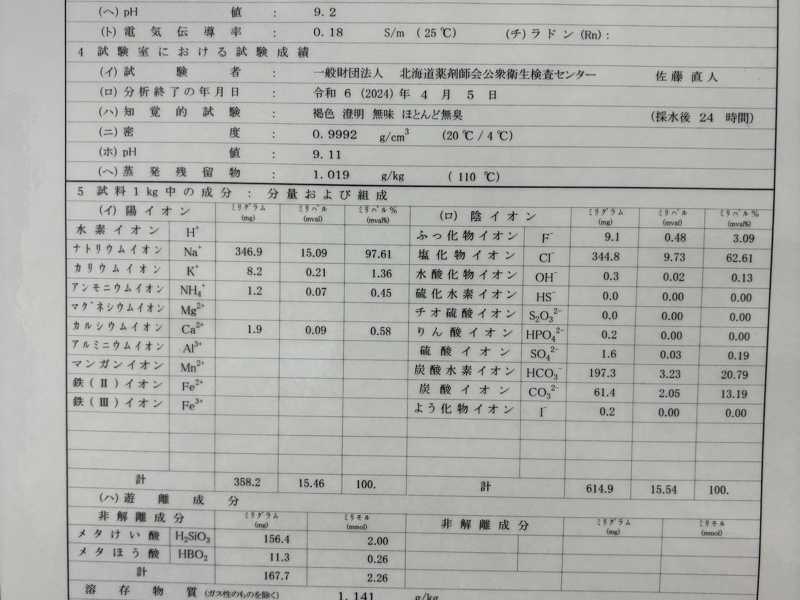 (ヘ) pH 値 : 9.2
(ト) 電気伝導率 : 0.18 S/m (25℃) (チ) ラドン (Rn) :
4 試験室における試験成績
(イ) 試験者 : 一般財団法人 北海道薬剤師会公衆衛生検査センター 佐藤直人
(ロ) 分析終了の年月日 : 令和 6 (2024) 年 4 月 5 日
(ハ) 知覚的試験 : 褐色 澄明 無味 ほとんど無臭 (採水後 24 時間)
(ニ) 密度 : 0.9992 g/cm³ (20℃/4℃)
(ホ) pH 値 : 9.11
(ヘ) 蒸発残留物 : 1.019 g/kg (110 ℃)
5 試料1kg中の成分 : 分量および組成
(イ) 陽イオン ミリグラム (mg) ミリバル (mval) ミリバル% (mval%) (ロ) 陰イオン ミリグラム (mg) ミリバル (mval) ミリバル% (mval%)
水素イオン H⁺ ふっ化物イオン F⁻ 9.1 0.48 3.09
ナトリウムイオン Na⁺ 346.9 15.09 97.61 塩化物イオン Cl⁻ 344.8 9.73 62.61
カリウムイオン K⁺ 8.2 0.21 1.36 水酸化物イオン OH⁻ 0.3 0.02 0.13
アンモニウムイオン NH₄⁺ 1.2 0.07 0.45 硫化水素イオン HS⁻ 0.0 0.00 0.00
マグネシウムイオン Mg²⁺ チオ硫酸イオン S₂O₃²⁻ 0.0 0.00 0.00
カルシウムイオン Ca²⁺ 1.9 0.09 0.58 りん酸イオン HPO₄²⁻ 0.2 0.00 0.00
アルミニウムイオン Al³⁺ 硫酸イオン SO₄²⁻ 1.6 0.03 0.19
マンガンイオン Mn²⁺ 炭酸水素イオン HCO₃⁻ 197.3 3.23 20.79
鉄(Ⅱ)イオン Fe²⁺ 炭酸イオン CO₃²⁻ 61.4 2.05 13.19
鉄(Ⅲ)イオン Fe³⁺ よう化物イオン I⁻ 0.2 0.00 0.00
計 358.2 15.46 100. 計 614.9 15.54 100.
(ハ) 遊離成分
非解離成分 ミリグラム (mg) ミリモル (mmol) 非解離成分 ミリグラム (mg) ミリモル (mmol)
メタけい酸 H₂SiO₃ 156.4 2.00
メタほう酸 HBO₂ 11.3 0.26
計 167.7 2.26
溶存物質 (ガス性のものを除く) 1.141 g/kg